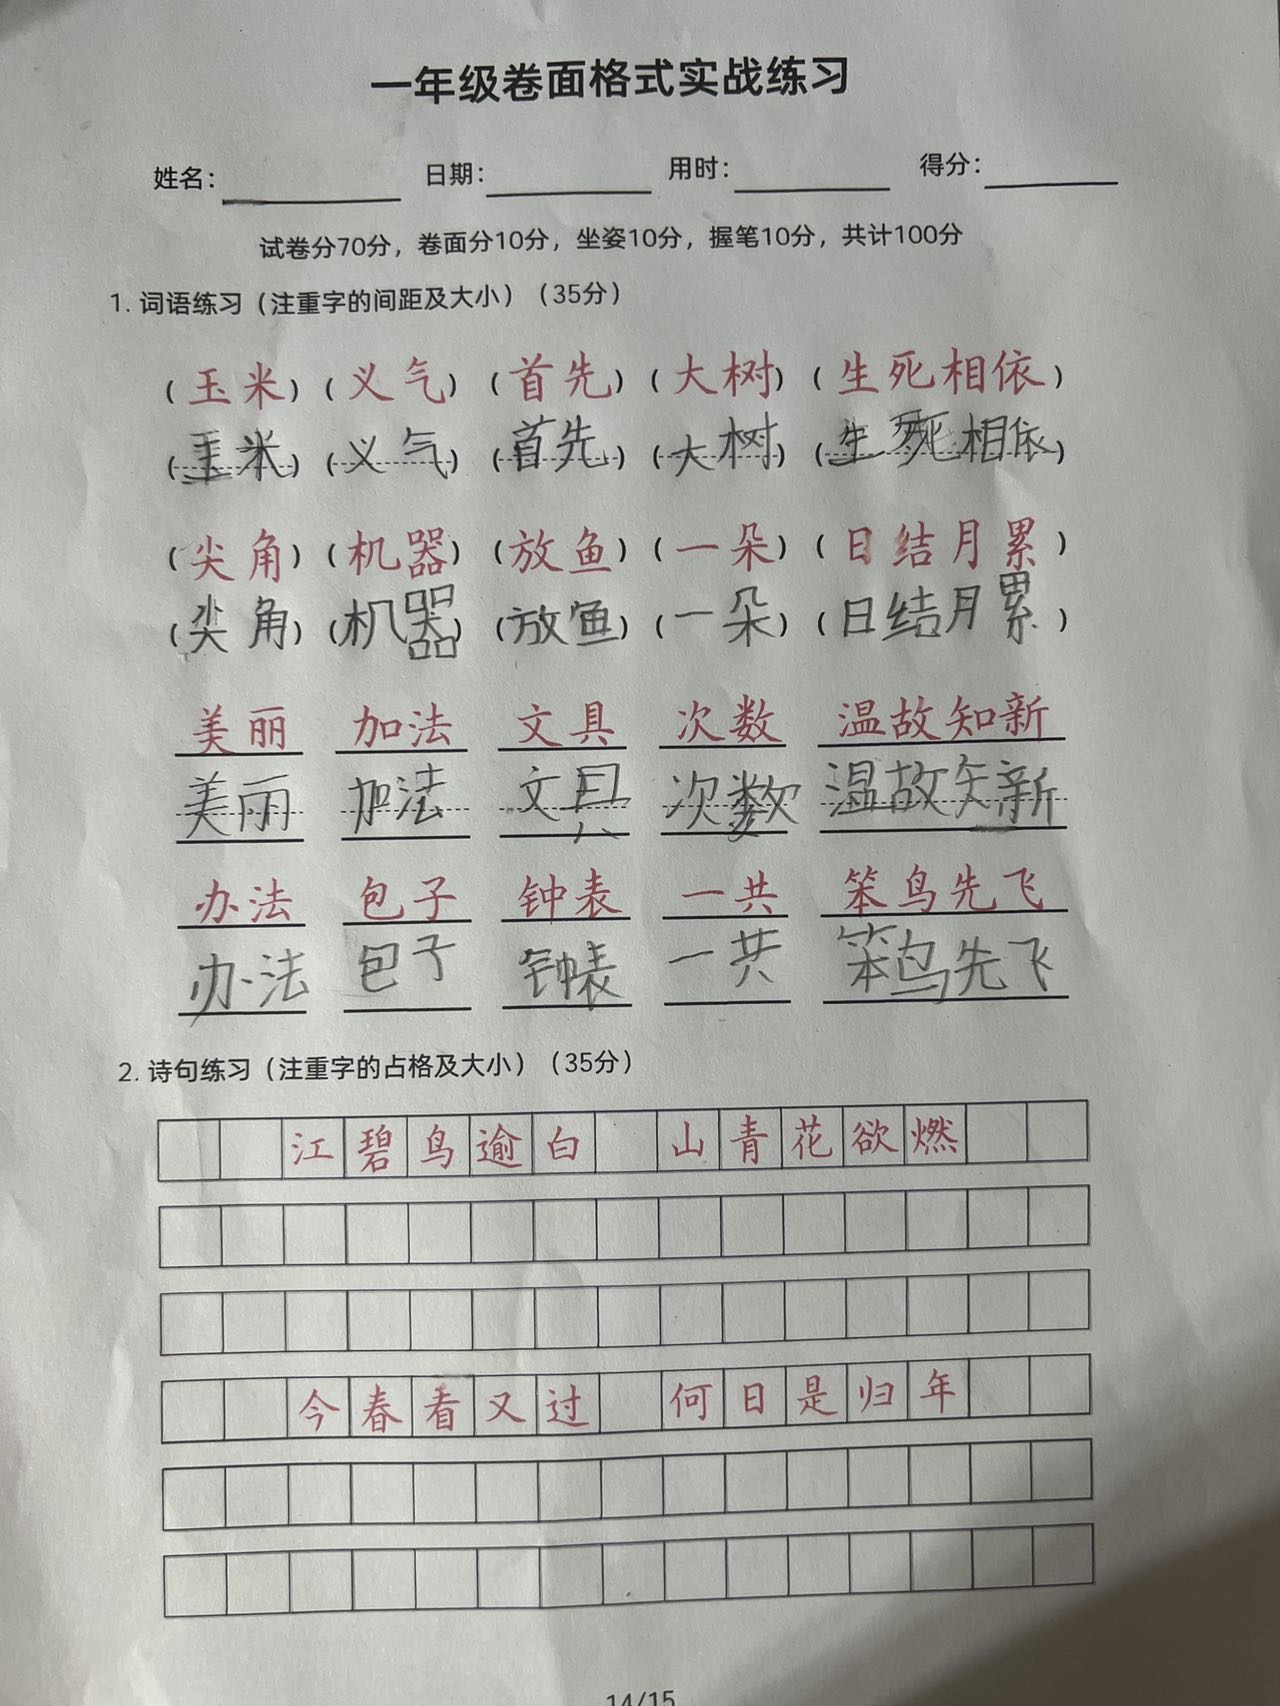 一年级卷面格式实战练习
姓名： 日期： 用时： 得分：
试卷分70分，卷面分10分，坐姿10分，握笔10分，共计100分
1. 词语练习（注重字的间距及大小）（35分）
（玉米）（义气）（首先）（大树）（生死相依）
（玉米）（义气）（首先）（大树）（生死相依）
（尖角）（机器）（放鱼）（一朵）（日结月累）
（尖角）（机器）（放鱼）（一朵）（日结月累）
美丽 加法 文具 次数 温故知新
美丽 加法 文具 次数 温故矢新
办法 包子 钟表 一共 笨鸟先飞
办法 包子 钟表 一共 笨鸟先飞
2. 诗句练习（注重字的占格及大小）（35分）
江碧鸟逾白 山青花欲燃
今春看又过 何日是归年
14/15